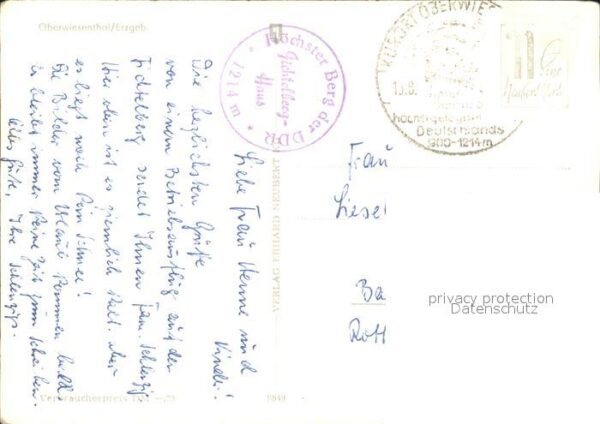 Oberwiesenthal/Erzgeb.
Höchster Berg der DDR
Fichtelberg-
Haus
1214 m
KURORT OBERWIES
Deutschlands
900-1214m
Liebe Frau Henne und
Kinder!
Die herzlichsten Grüße
von einem Betriebsausflug auf den
Fichtelberg sendet Ihnen Fam. Schlenzig
Hier oben ist es ziemlich kalt. Aber
es liegt noch kein Schnee!
Die Bilder vom Urlaub kommen bald
es bleibt immer keine Zeit zum Schreiben.
Alles Gute, Ihre Schlenzigs.
Frau
Liesel
Ba
Rott
VERLAG ERHARD NEUBERT
Verbraucherpreis
privacy protection
Datenschutz